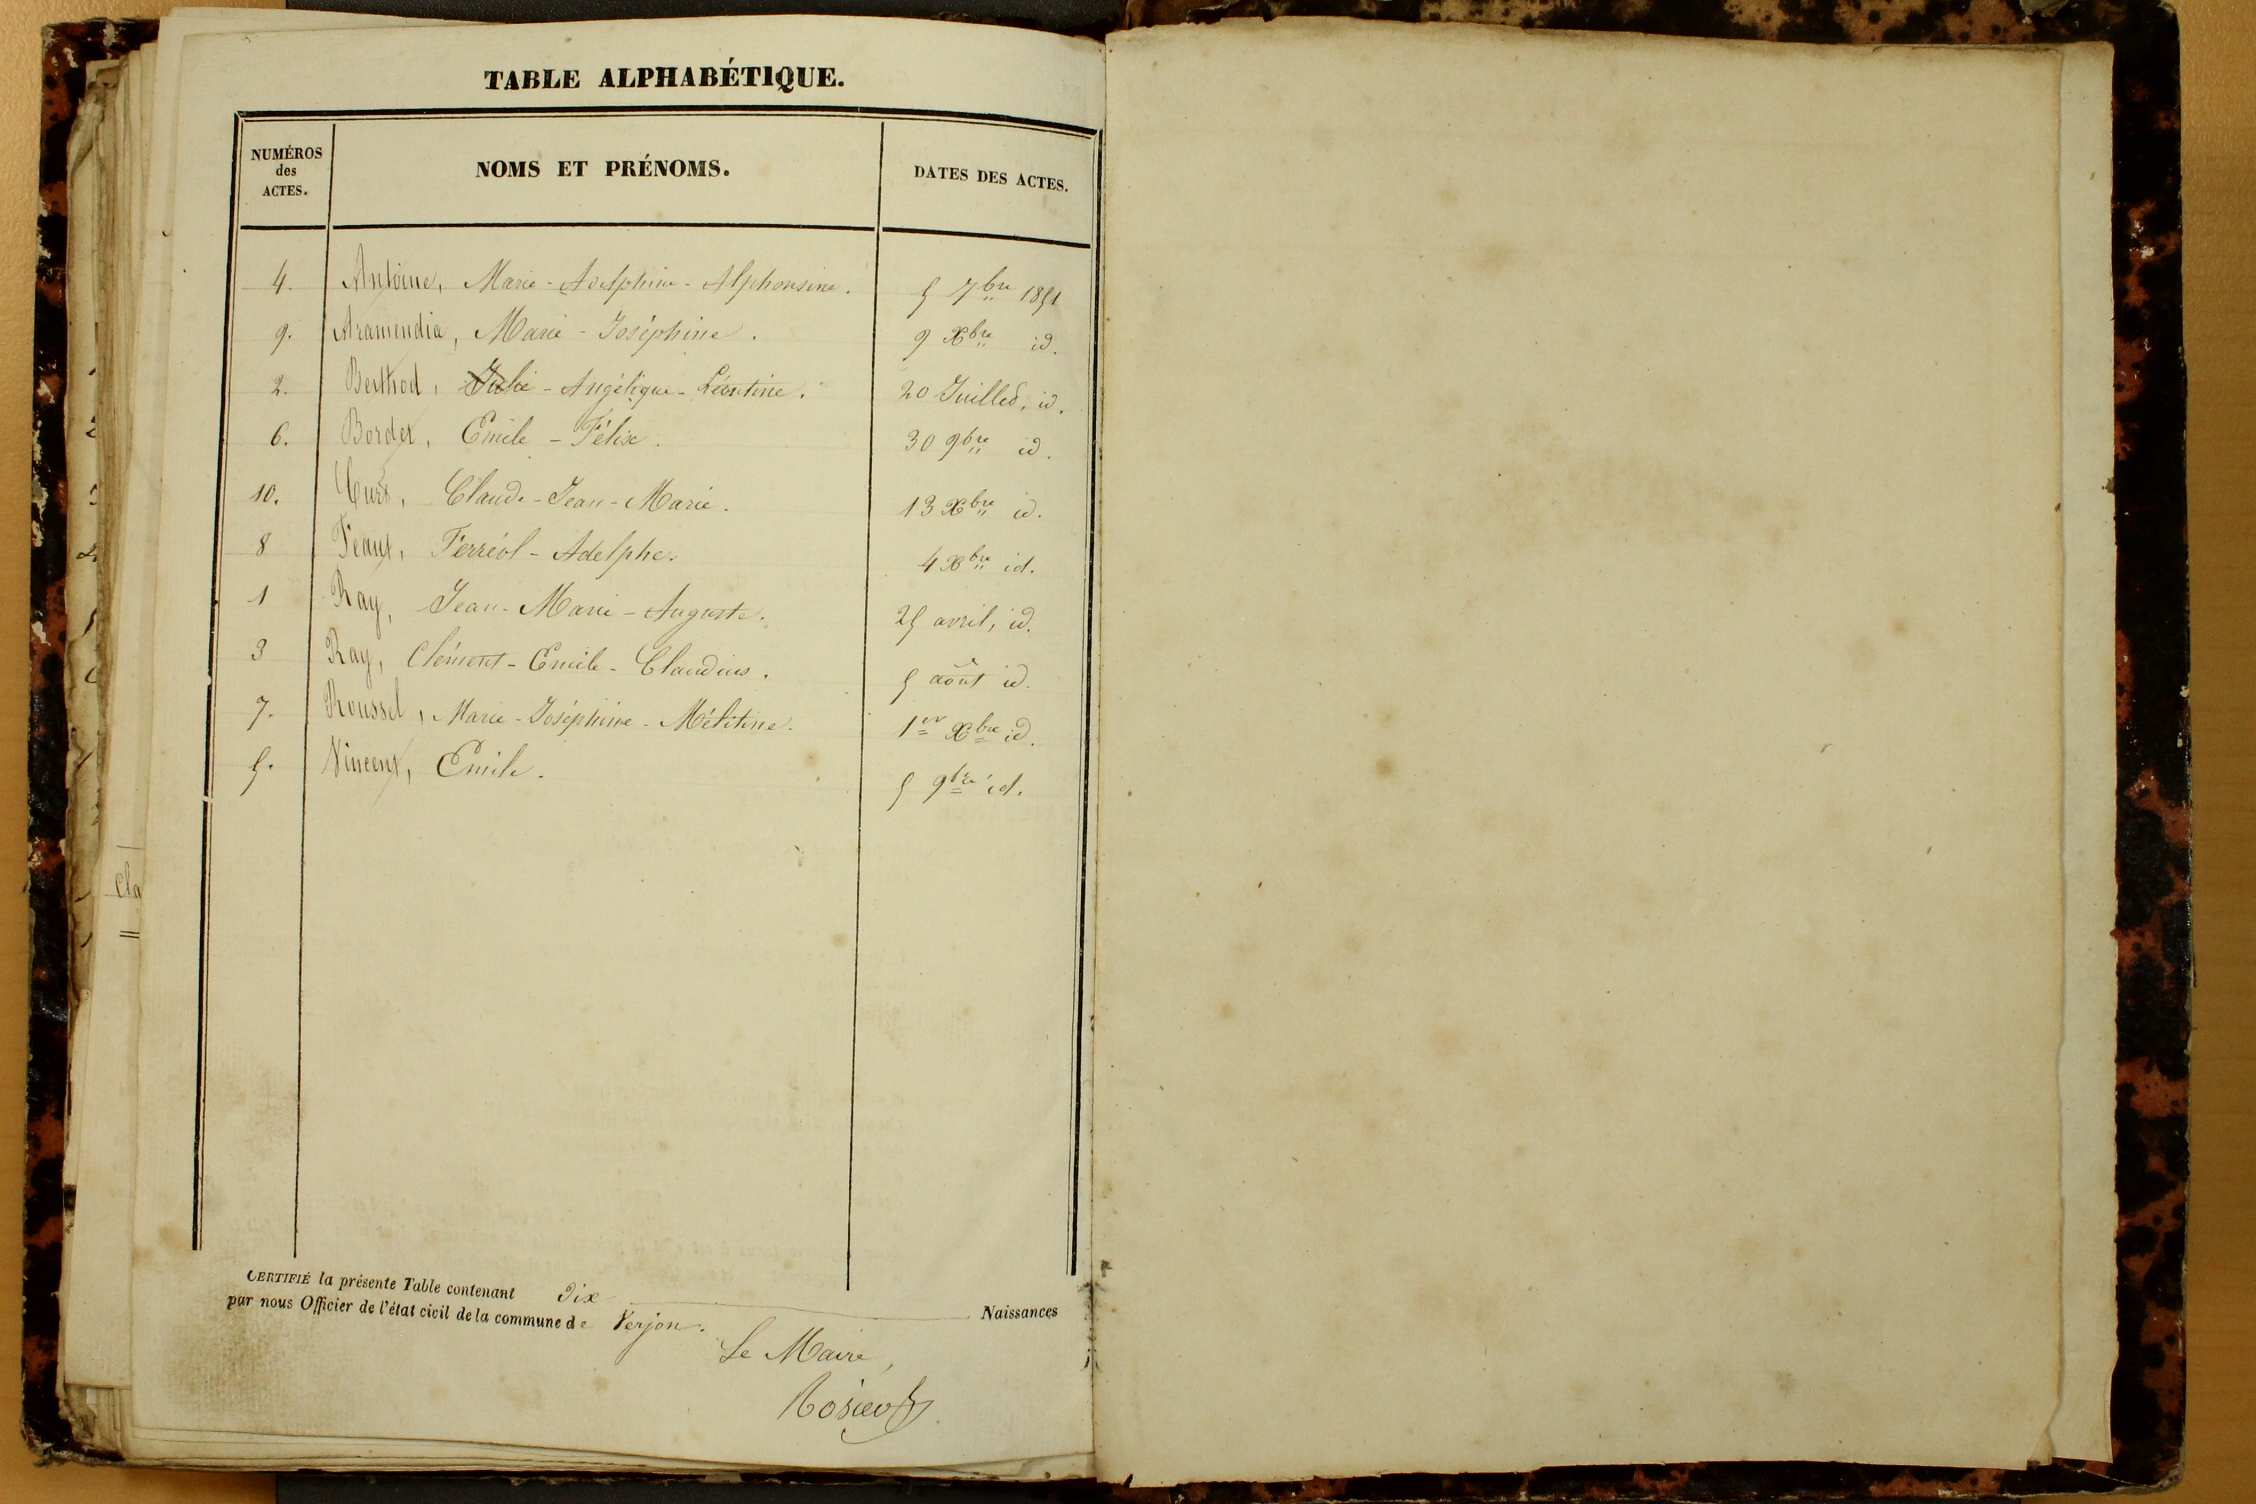 TABLE ALPHABÉTIQUE.
NUMÉROS
des
ACTES.
NOMS ET PRÉNOMS.
DATES DES ACTES.
4. Antoine, Marie - Adelphine - Alphonsine. 5 7bre 1851
9. Aramendia, Marie - Joséphine. 9 Xbre id.
2. Berthod, Julie - Angélique - Léontine. 20 Juillet, id.
6. Bordet, Emile - Félise. 30 9bre id.
10. Curt, Claude - Jean - Marie. 13 Xbre id.
8 Féaux, Ferréol - Adelphe. 4 Xbre id.
1 Ray, Jean - Marie - Auguste. 25 avril, id.
3 Ray, Clément - Emile - Claudius. 5 août id.
7. Roussel, Marie - Joséphine - Mélitine. 1er Xbre id.
5. Vincent, Emile. 5 9bre id.
CERTIFIÉ la présente Table contenant dix Naissances
par nous Officier de l'état civil de la commune de Verjon.
Le Maire,
Cla